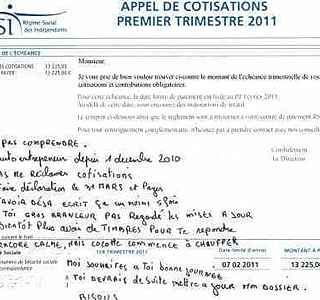 Régime Social
des Indépendants
APPEL DE COTISATIONS
PREMIER TRIMESTRE 2011
DE L'ÉCHEANCE
COTISATIONS 13 225,00
PAYER 13 225,00 €
Monsieur,
Je vous prie de bien vouloir trouver ci-contre le montant de l'échéance trimestrielle de vos
cotisations et contributions obligatoires.
Pour cette échéance, la date limite de paiement est fixée au 07 Février 2011.
Au delà de cette date, vous encourez des majorations de retard.
Le coupon ci-dessous ainsi que le règlement sont à retourner à votre centre de paiement RSI
Pour tout renseignement complémentaire, n'hésitez pas à prendre contact avec nos conseillers
Cordialement
La Direction
PAS COMPRENDRE.
auto entrepreneur depuis 1 decembre 2010
PAS ME RECLAMER COTISATIONS
Faire déclaration le 31 MARS et Payer
T'AVOIR DEJA ECRIT ÇA un moi
TOI GROS BRANLEUR PAS REGARDE les MISES A JOUR
BIENTOT PLUS AVOIR DE TIMBRES POUR TE repondre
ENCORE CALME, MAIS COCOTTE COMMENCE à CHAUFFER
Sociale
1ER TRIMESTRE 2011
Date limite d'envoi
MONTANT A
07 02 2011
13 225,00
de Sécurité sociale
MOI SOUHAITES A TOI BONNE JOURNEE
TOI DEVRAIS DE SUITE METTRE A JOUR MON DOSSIER.
BISOUS